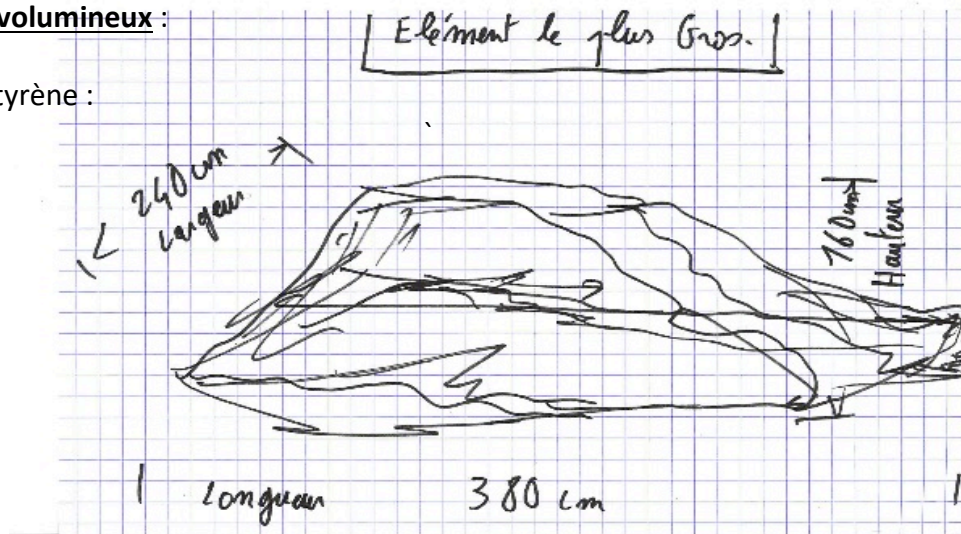 volumineux :
Elément le plus Gros.
tyrène :
240 cm
Largeur
160 cm
Hauteur
Longueur 380 cm